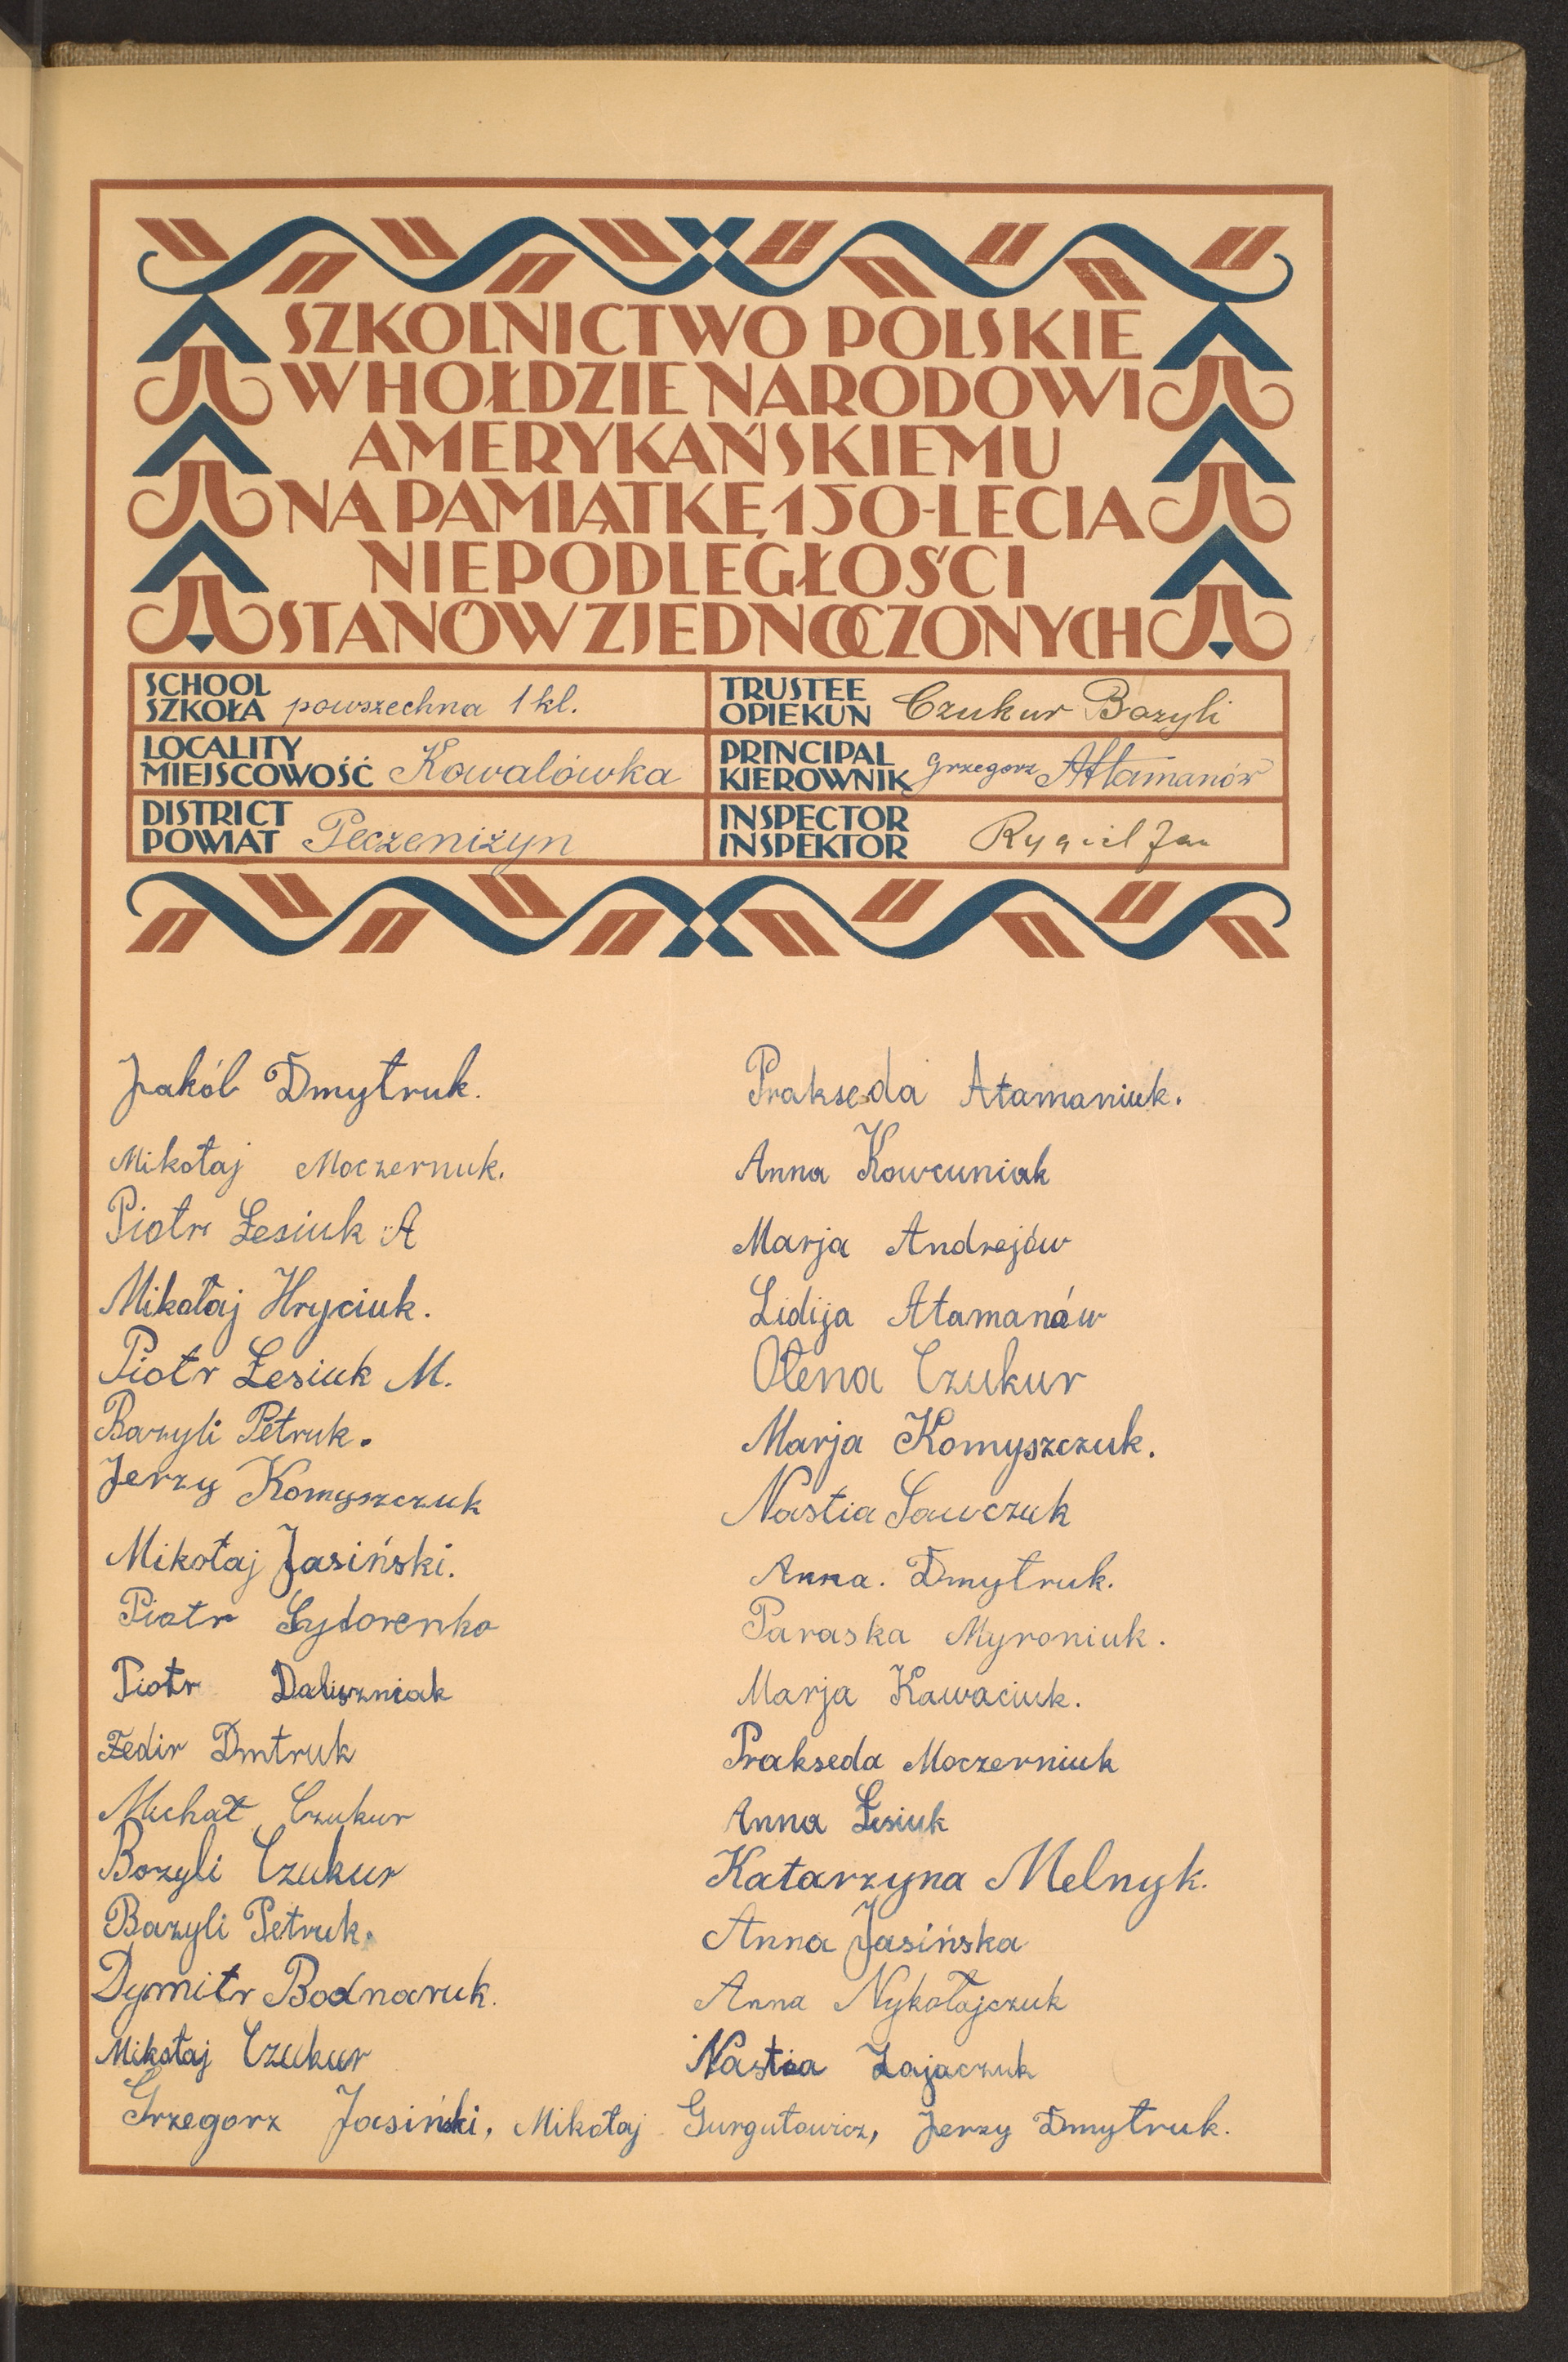 SZKOLNICTWO POLSKIE
W HOŁDZIE NARODOWI
AMERYKAŃSKIEMU
NA PAMIĄTKĘ 150-LECIA
NIEPODLEGŁOŚCI
STANÓW ZJEDNOCZONYCH
SCHOOL
SZKOŁA powszechna 1 kl.
LOCALITY
MIEJSCOWOŚĆ Kowalówka
DISTRICT
POWIAT Peczeniżyn
TRUSTEE
OPIEKUN Czukur Bazyli
PRINCIPAL
KIEROWNIK Grzegorz Attamanów
INSPECTOR
INSPEKTOR Rygiel Jan
Jakób Dmytruk.
Mikołaj Moczernuk.
Piotr Łesiuk A
Mikołaj Hryciuk.
Piotr Łesiuk M.
Bazyli Petruk.
Jerzy Komyszczuk
Mikołaj Jasiński.
Piotr Sydorenko
Piotr Daliszniak
Fedir Dmtruk
Michał Czukur
Bozyli Czukur
Bazyli Petruk.
Dymitr Bodnaruk.
Mikołaj Czukur
Prakseda Atamaniuk.
Anna Kowcuniak
Marja Andrejów
Lidija Atamanów
Ołena Czukur
Marja Komyszczuk.
Nastia Sawczuk
Anna. Dmytruk.
Paraska Myroniuk.
Marja Kawaciuk.
Prakseda Moczerniuk
Anna Łesiuk
Katarzyna Melnyk.
Anna Jasińska
Anna Nykołajczuk
Nastia Zajaczuk
Grzegorz Jasiński, Mikołaj Gurgutowicz, Jerzy Dmytruk.